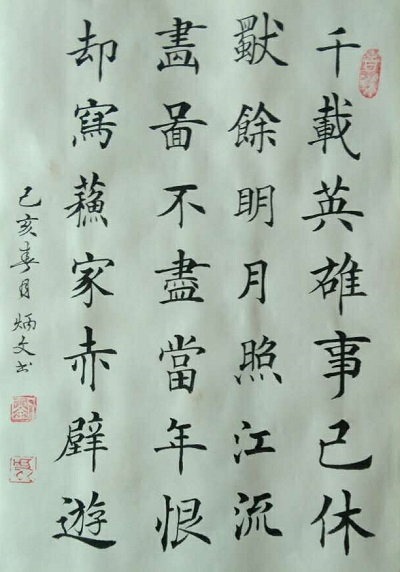 千載英雄事已休
獨餘明月照江流
畫啚不盡當年恨
却寫蘓家赤壁遊
己亥春月炳文书